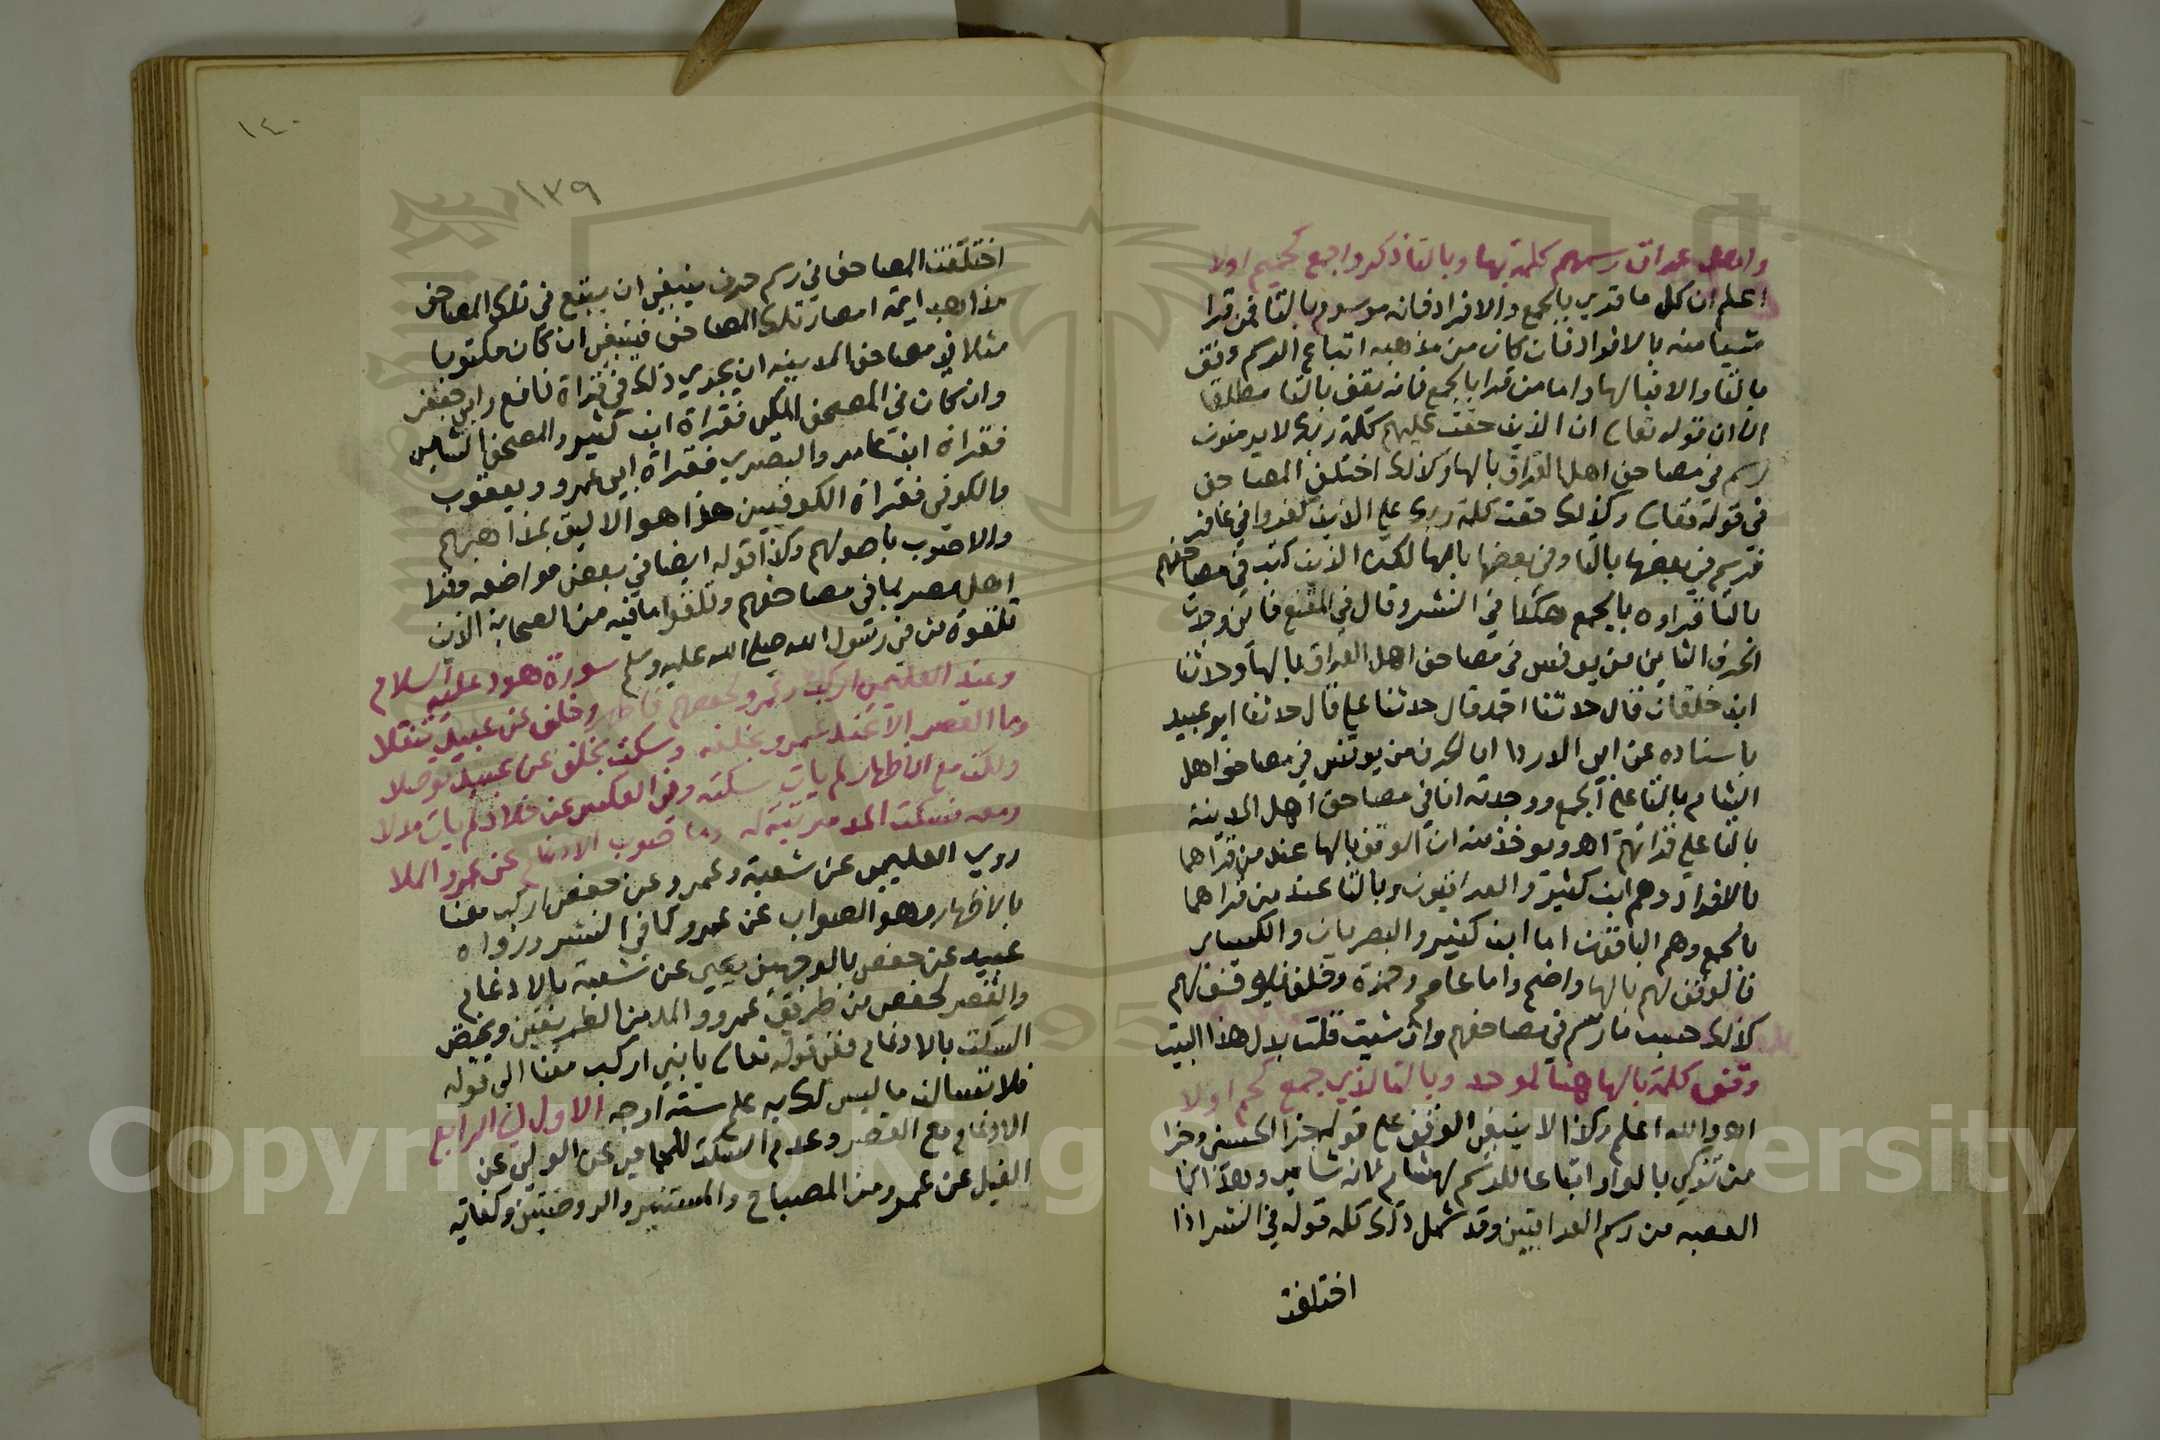 واهل عراق رسمهم كلمة بها وبالتا ذكروا جمع كحيم اولا
اعلم ان كل ما قري بالجمع والافراد فانه مرسوم بالتا فمن قرا
شيئا منه بالافراد فان كان من مذهبه اتباع الرسم وقف
بالتا والا فبالها واما من قرا بالجمع فانه يقف بالتا مطلقا
الا ان قوله تعالى ان الذين حقت عليهم كلمة ربك لا يومنون
رسم في مصاحف اهل العراق بالها وكذلك اختلف المصاحف
في قوله تعالى وكذلك حقت كلمة ربك على الذين كفروا في غافر
فرسم في بعضها بالتا وفي بعضها بالها لكن الذين كتب في مصاحفهم
بالتا قراوه بالجمع هكذا في النشر وقال في المقنع فاني وجدت
الحرف الثاني من يونس في مصاحف اهل العراق بالها وحدثنا
ابن خلقان قال حدثنا احمد قال حدثنا علي قال حدثنا ابو عبيد
باسناده عن ابي الدردا ان الحرف من يونس في مصاحف اهل
الشام بالتا على الجمع ووجدته انا في مصاحف اهل المدينة
بالتا على قراتهم اهـ ويوخذ منه ان الوقف بالها عند من قراهما
بالافراد وهم ابن كثير والعراقيون وبالتا عند من قراهما
بالجمع وهم الباقون اما ابن كثير والبصريان والكسائي
فالوقف لهم بالها واضح واما عاصم وحمزة وخلف فيوقف لهم
كذلك حسب ما رسم في مصاحفهم وان شيت قلت بدل هذا البيت
وقف كلمة بالها هنا لموحد وبالتا لذي جمع كحم اولا
اهـ والله اعلم وكذا لا ينبغي الوقف على قوله جزا الحسنى وجزا
من تزكى بالواو اتباعا للرسم لهشام لانه شامي وهذا انما
العصبه من رسم العراقيين وقد شمل ذلك كله قوله في النشر اذا
اختلفت
١٤٠
١٣٩
اختلفت المصاحف في رسم حرف ينبغي ان يتبع في تلك المصاحف
مذاهب ايمة امصار تلك المصاحف فينبغي ان كان مكتوبا
مثلا في مصاحف المدينة ان يجري ذلك في قراة نافع وابي جعفر
وان كان في المصحف المكي فقراة ابن كثير والمصحف الشامي
فقراة ابن عامر والبصري فقراة ابي عمرو ويعقوب
والكوفي فقراة الكوفيين هذا هو الاليق بمذاهبهم
والاصوب باصولهم وكذا قوله ايضا في بعض مواضعه وقرا
اهل مصر بما في مصاحفهم وتلقوا ما فيه من الصحابة الذين
تلقوه من في رسول الله صلى الله عليه وسلم سورة هود عليه السلام
وعند العليمي اركب وعمرو لحفصهم فاظهر وخلف عن عبيد تنقلا
وما القصر الا عند عمرو بخلفه وسكت بخلف عن عبيد توصلا
ولكن مع الاظهار لم يات سكته وفي العكس عن خلاد لم يات مدلا
ومعه فسكت المد مرتبة له وما صوب الادغام عن عمرو الملا
روي العليمي عن شعبة وعمرو عن حفص اركب معنا
بالاظهار وهو الصواب عن عمرو كما في النشر ورواه
عبيد عن حفص بالوجهين يحيى عن شعبة بالادغام
والقصر لحفص من طريق عمرو والمد من الطريقين ويختص
السكت بالادغام ففي قوله تعالى يا بني اركب معنا الى قوله
فلا تسالن ما ليس لك به علم ستة اوجه الاول الى الرابع
الادغام مع القصر وعدم السكت للحمامي عن الولي عن
الفيل عن عمرو من المصباح والمستنير والروضتين وكفاية